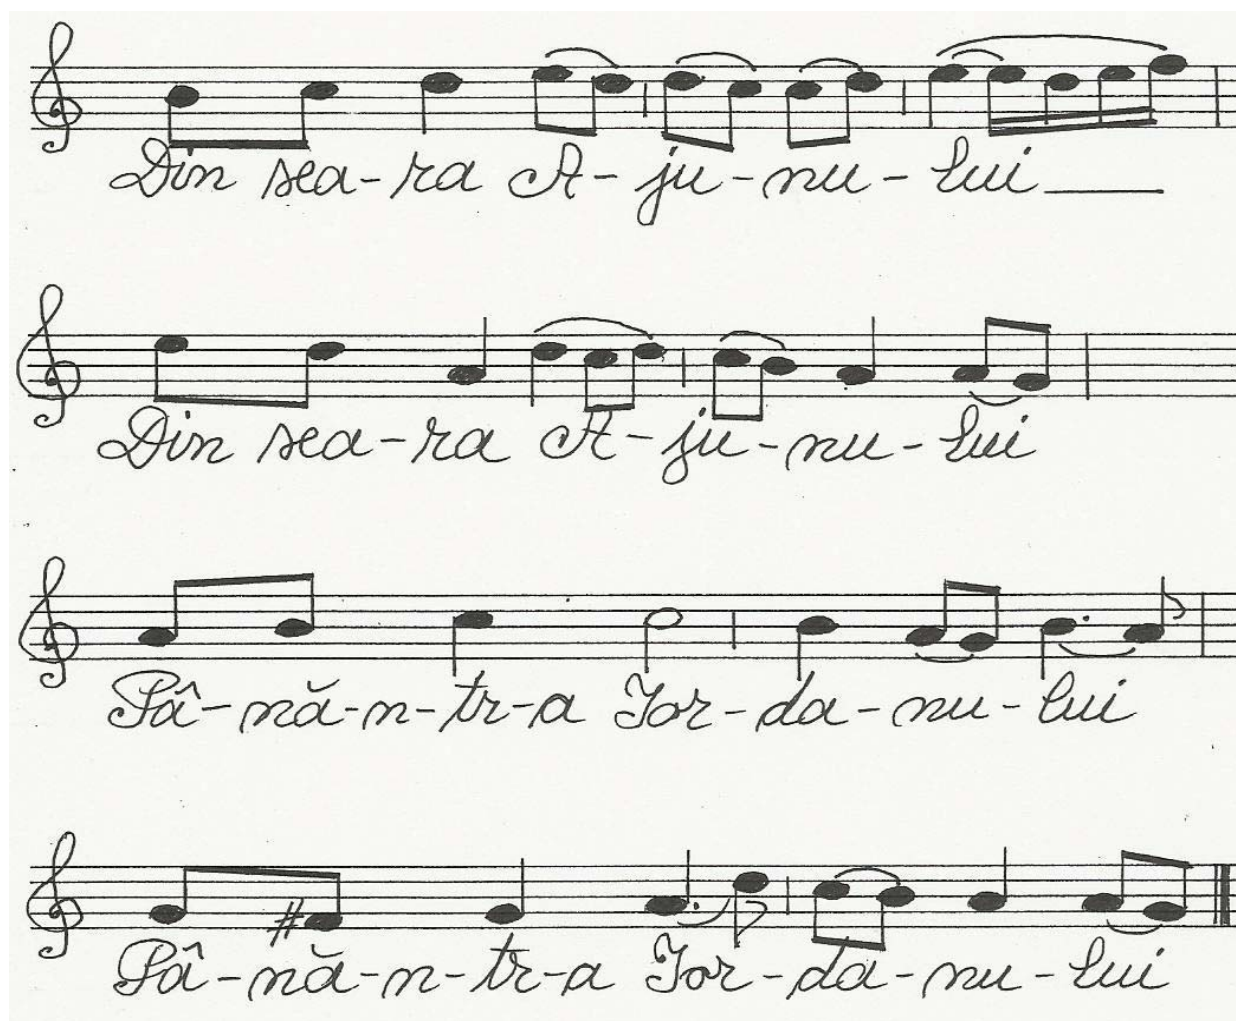 Din sea-ra A-ju-nu-lui
Din sea-ra A-ju-nu-lui
Pâ-nă-n-tr-a Ior-da-nu-lui
Pâ-nă-n-tr-a Ior-da-nu-lui